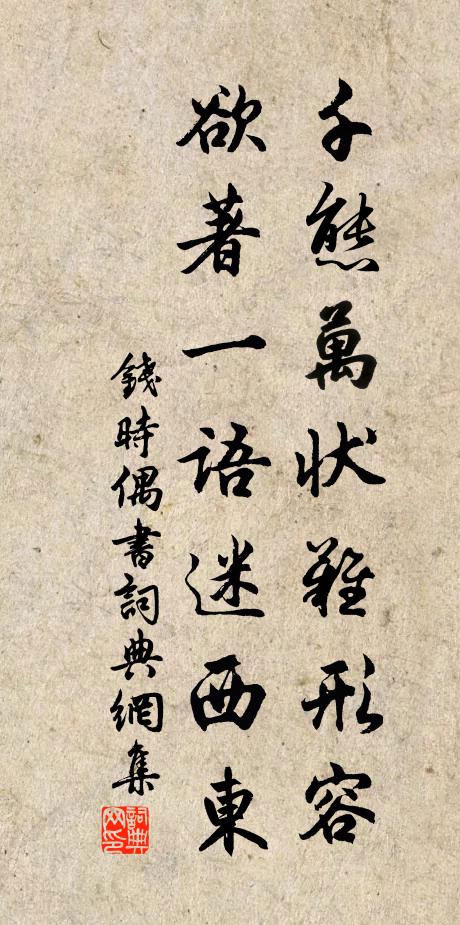 千態萬狀難形容
欲著一语迷西東
錢時偶書詞典網集
詞典网印